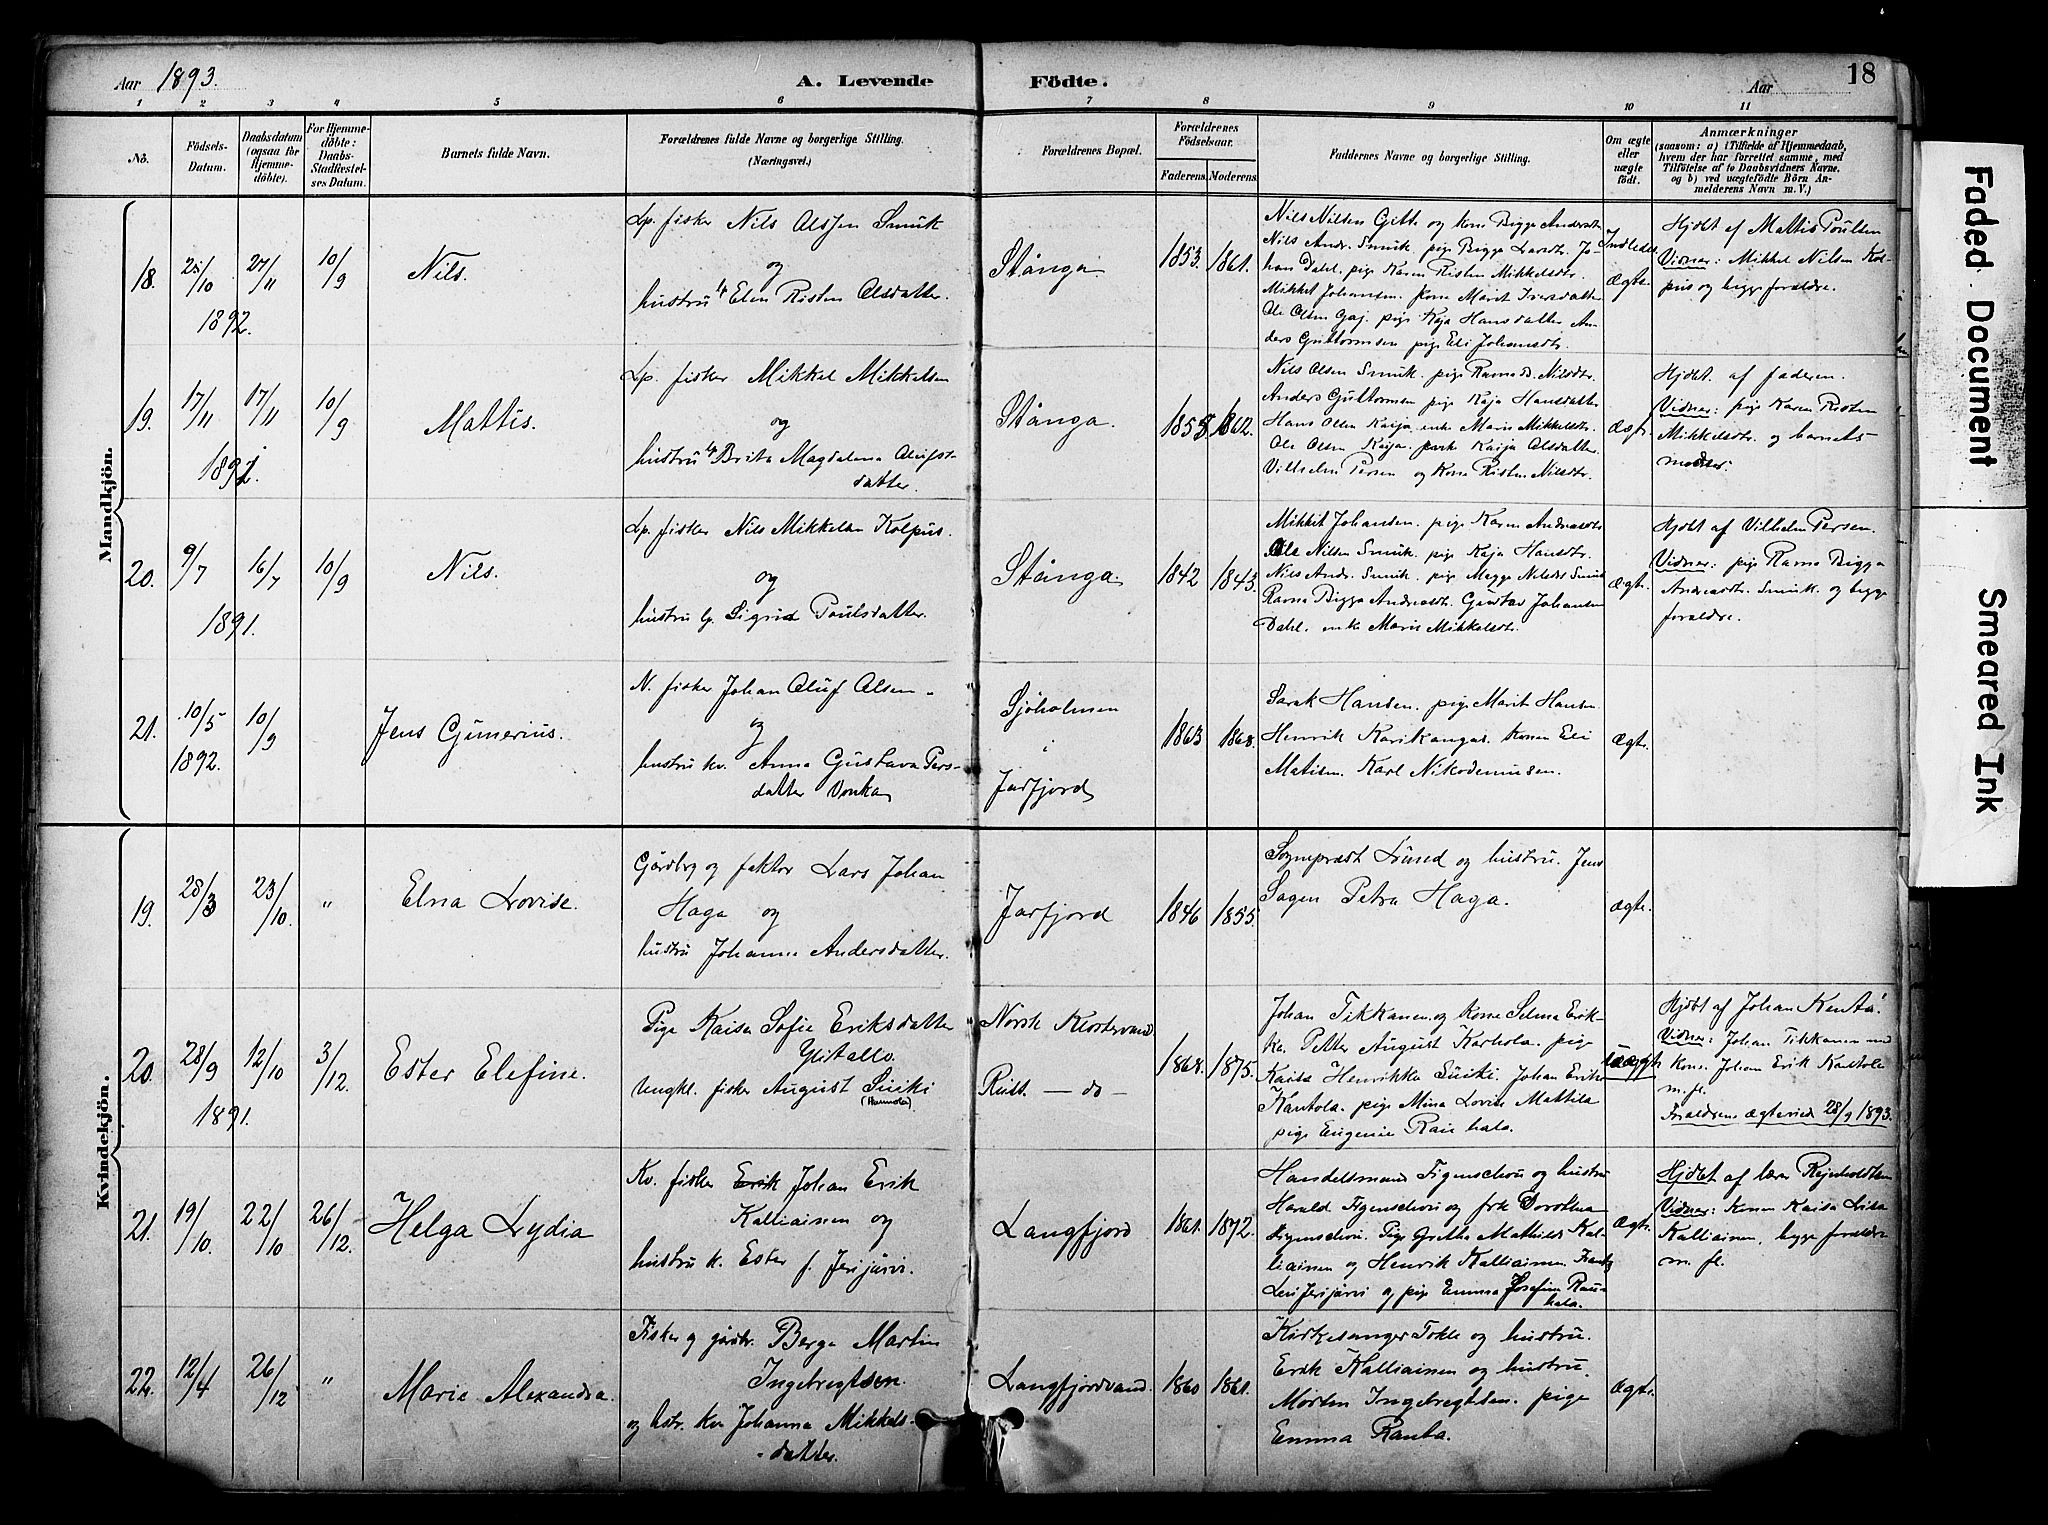 Aar 1893.
A. Levende
Födte.
Aar
18
1 2 3 4 5 6 7 8 9 10 11
No.
Födsels-
Datum.
Daabsdatum
(ogsaa for
Hjemme-
döbte).
For Hjemme-
döbte:
Daabs-
Stadfæstel-
ses Datum.
Barnets fulde Navn.
Forældrenes fulde Navne og borgerlige Stilling.
(Næringsvei.)
Forældrenes Bopæl.
Forældrenes
Födselsaar.
Faderens. Moderens.
Faddernes Navne og borgerlige Stilling.
Om ægte
eller
uægte
födt.
Anmærkninger
(saasom: a) i Tilfælde af Hjemmedaab,
hvem der har forrettet samme, med
Tilföielse af to Daabsvidners Navne,
og b) ved uægtefödte Börn An-
melderens Navn m. V.)
Mandkjön.
18.
25/10
1892.
27/11
10/9
Nils.
Lp. fisker Nils Olssen Smuk
og
hustru lp Elen Risten Olsdatter.
Stånga
1853. 1861.
Nils Nilsen Gitt og kone Bigga Andersdtr
Nils Andr. Smuk pige Bigga Larsdtr. Jo-
han Dahl. pige Karen Risten Mikkelsdtr.
Mikkel Johansen. kone Marit Iversdatter
Ole Olsen Gaj. pige Kaja Hansdatter An-
ders Guttormsen pige Eli Johansdtr.
ægte
Hjdøt af Mattis Poulsen
Vidner: Mikkel Nilsen Kol-
pus og begge forældre.
19.
17/11
1892.
17/11
10/9
Mattis.
Lp. fisker Mikkel Mikkelsen
og
hustru lp Brita Magdalena Olufs-
datter.
Stånga.
1855 1862.
Nils Olsen Smuk. pige Ravna B. Nilsdtr.
Anders Guttormsen pige Kaja Hansdatter
Hans Olsen Kaija enke Maris Mikkelsdtr.
Ole Olsen Kaija. Kaija Olsdatter.
Vilhelm Persen og Kone Risten Nilsdtr.
ægt.
Hjdøt. af faderen.
Vidner: pige Karen Risten
Mikkelsdtr. og barnets
moder.
20.
9/7
1891.
16/7
10/9
Nils.
Lp. fisker Nils Mikkelsen Kolpus.
og
hustru lp. Sigrid Poulsdatter.
Stånga.
1842 1843.
Mikkel Johansen. pige Karen Andreasdtr
Ole Nilsen Smuk. pige Kaja Hansdtr.
Nils Andr. Smuk. pige Magga Nilsdtr Smuk
Ravna Bigga Andreasdtr. Gustav Johansen
Dahl. enke Maris Mikkelsdtr.
ægt.
Hjdøt af Vilhelm Persen.
Vidner: pige Ravna Bigga
Andreasdtr. Smuk. og begge
forældre.
21.
10/5
1892.
10/9
Jens Gunerius.
N. fisker Johan Oluf Olsen
og
hustru kv. Anna Gustava Pers-
datter Vonka
Sjøholmen
i
Jarfjord
1863 1868.
Sarak Hansen. pige Marit Hansen
Henrik Karikangas. konen Eli
Matisen. Karl Nikodemusen.
ægt.
Kvindekjön.
19.
28/3
23/10.
"
Elna Lovise.
Gårdbrg og faktor Lars Johan
Haga og
hustru Johanna Andersdatter.
Jarfjord
1846 1855.
Sognepræst Lund og hustru. Jens
Sagen Petra Haga.
ægte.
20.
28/9
1891.
12/10
3/12.
Ester Elefine.
Pige Kaisa Sofie Eriksdatter
Ylitallo.
Ungkl. fisker August Suiki
(Hannola)
Norsk Klostervand
Russ. — do —
1868. 1875.
Johan Tikkanen og kone Selma Erik-
ka. Petter August Karhola. pige
Kaisa Henrikka Suiki. Johan Erik
Kantola. pige Mina Lovise Mattila
pige Eugenie Rauhala.
uægte
Hjdøt af Johan Kenta.
Vidner: Johan Tikkanen med
kone. Johan Erik Kantola
m. fl.
Forældrene ægteviet 28/9 1893.
21.
19/10.
22/10
26/12.
Helga Lydia
Kv. fisker Erik Johan Erik
Kalliainen og
hustru k. Ester f. Jerijärvi.
Langfjord
1861. 1872.
Handelsmand Figenschou og hustru
Harald Figenschou og frk Dorothea
Figenschou. Pige Gretha Mathilde Kal-
liainen og Henrik Kalliainen.
Levi Jerijärvi og pige Emma Josefina Rau-
hala.
ægt.
Hjdøt af lærer Rejnholdtsen
Vidner: Konen Kaisa Lisa
Kalliainen, begge forældre
m. fl.
22.
12/4
26/12
"
Marie Alexandra.
Fisker og gårdbr. Berge Martin
Ingebregtsen.
og hstr. kv. Johanna Mikkels-
datter.
Langfjordvand.
1860 1861.
Kirkesanger Tokle og hustru.
Erik Kalliainen og hustru.
Morten Ingebregtsen. pige
Emma Ranta.
ægt.
Faded Document
Smeared Ink